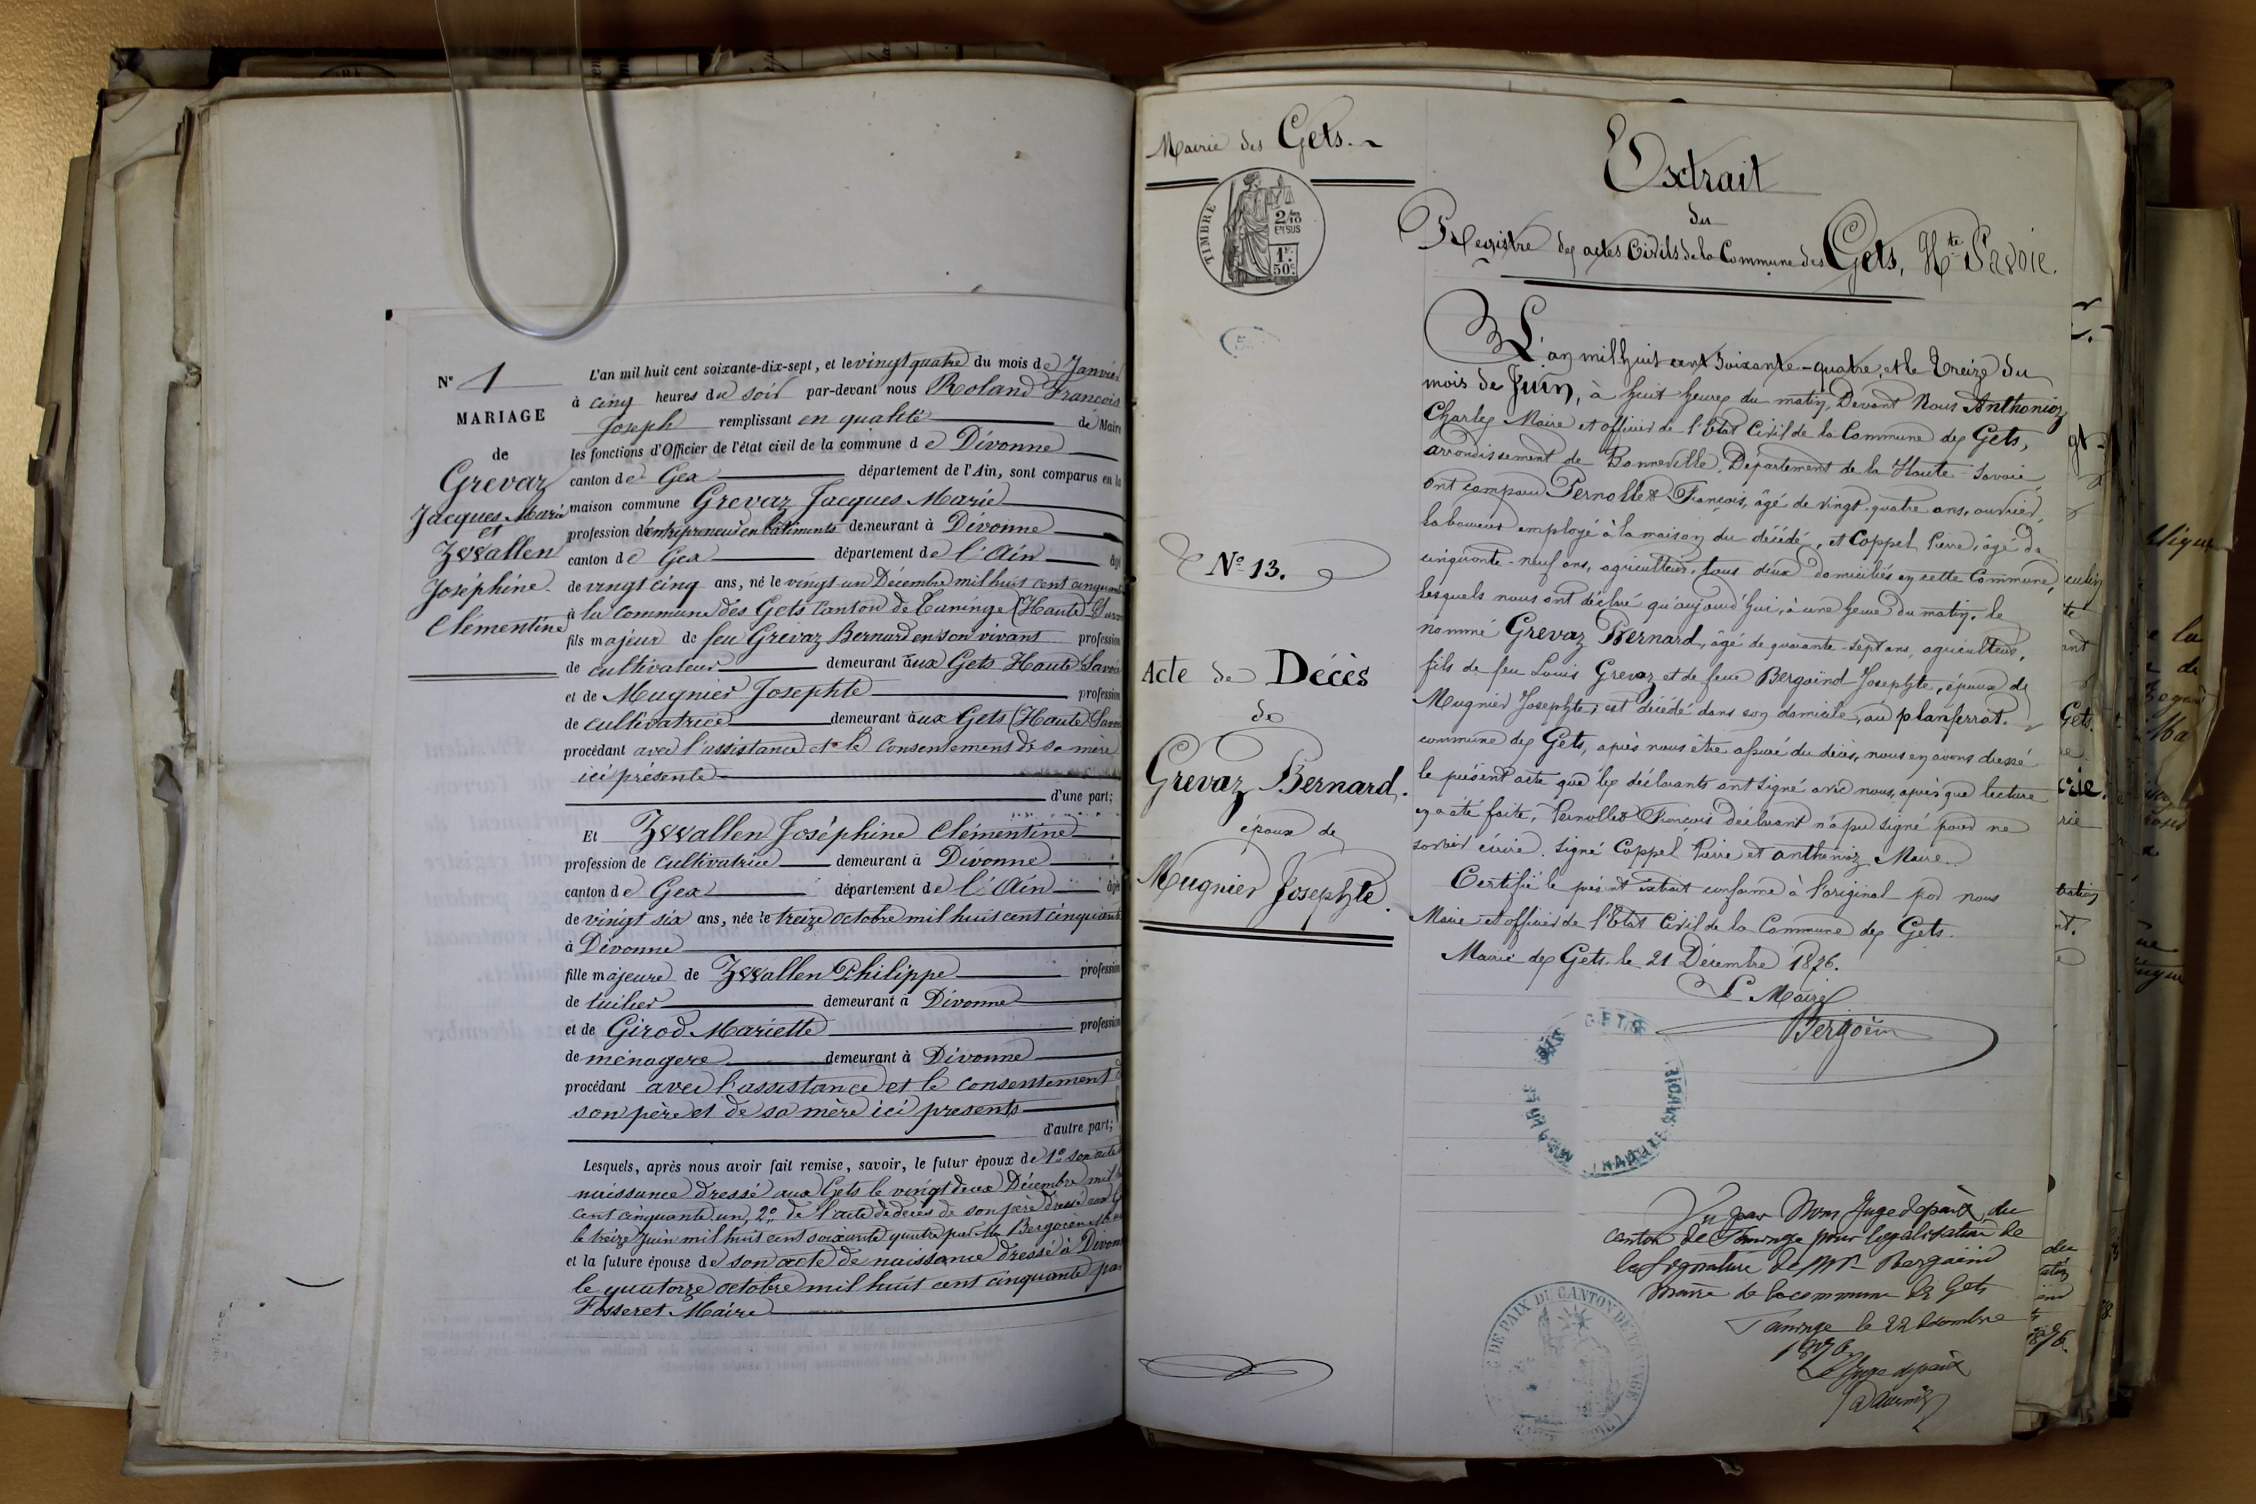 N° 1
MARIAGE
de
Grevaz
Jacques Marie
et
Zwallen
Joséphine
Clémentine
L'an mil huit cent soixante-dix-sept, et le vingt quatre du mois de Janvier
à cinq heures du soir par-devant nous Roland François
Joseph remplissant en qualité de Maire
les fonctions d'Officier de l'état civil de la commune de Divonne
canton de Gex département de l'Ain, sont comparus en la
maison commune Grevaz Jacques Marie
profession d'entrepreneur en bâtiments demeurant à Divonne
canton de Gex département de l'Ain âgé
de vingt cinq ans, né le vingt un Décembre mil huit cent cinquante
à la Commune des Gets Canton de Taninge (Haute
fils majeur de feu Grevaz Bernard en son vivant profession
de cultivateur demeurant aux Gets Haute Savoie
et de Mugnier Josephte profession
de cultivatrice demeurant aux Gets (Haute Savoie
procédant avec l'assistance et le consentement de sa mère
ici présente
d'une part;
Et Zwallen Joséphine Clémentine
profession de cultivatrice demeurant à Divonne
canton de Gex département de l'Ain âgée
de vingt six ans, née le treize octobre mil huit cent cinquante
à Divonne
fille majeure de Zwallen Philippe profession
de tuilier demeurant à Divonne
et de Girod Mariette profession
de ménagere demeurant à Divonne
procédant avec l'assistance et le consentement
son père et de sa mère ici presents
d'autre part;
Lesquels, après nous avoir fait remise, savoir, le futur époux de 1° son acte
naissance dressé aux Gets le vingt deux Décembre mil
cent cinquante un, 2° de l'acte de décès de son père dressé aux
le treize Juin mil huit cent soixante quatre par Mr Bergoën
et la future épouse de son acte de naissance dressé à Divonne
le quatorze octobre mil huit cent cinquante par
Fosseret Maire
Mairie des Gets.
TIMBRE
2/10
EN SUS
1F.
50c.
N° 13.
Acte de Décès
de
Grevaz Bernard.
époux de
Mugnier Josephte.
Extrait
du
Registre des actes Civils de la Commune des Gets, Hte Savoie.
L'an mil huit cent soixante-quatre, et le treize du
mois de Juin, à huit heures du matin, Devant Nous Anthonioz
Charles Maire et officier de l'Etat Civil de la Commune des Gets,
arrondissement de Bonneville, Département de la Haute-Savoie,
ont comparu Pernollet François, âgé de vingt quatre ans, ouvrier
laboureur employé à la maison du décédé, et Coppel Pierre, âgé de
cinquante-neuf ans, agriculteur, tous deux domiciliés en cette Commune,
lesquels nous ont déclaré qu'aujourd'hui, à une heure du matin, le
nommé Grevaz Bernard, âgé de quarante-sept ans, agriculteur,
fils de feu Louis Grevaz et de feue Bergoind Josephte, époux de
Mugnier Josephte, est décédé dans son domicile, au planferrat.
commune des Gets, après nous être assuré du décès, nous en avons dressé
le présent acte que les déclarants ont signé avec nous, après que lecture
en a été faite, Pernollet François déclarant n'a pu signé pour ne
savoir écrire. Signé Coppel Pierre et anthonioz Maire.
Certifié le présent extrait conforme à l'original par nous
Maire et officier de l'Etat Civil de la Commune des Gets.
Mairie des Gets. le 21 Décembre 1876.
Le Maire
Bergoën
Vu par Nous Juge de paix du
canton de Taninge pour légalisation de
la signature de Mr Bergoënd
Maire de la commune des Gets
Taninge le 22 décembre
1876
Le Juge de paix
DE PAIX DU CANTON DE TANINGE